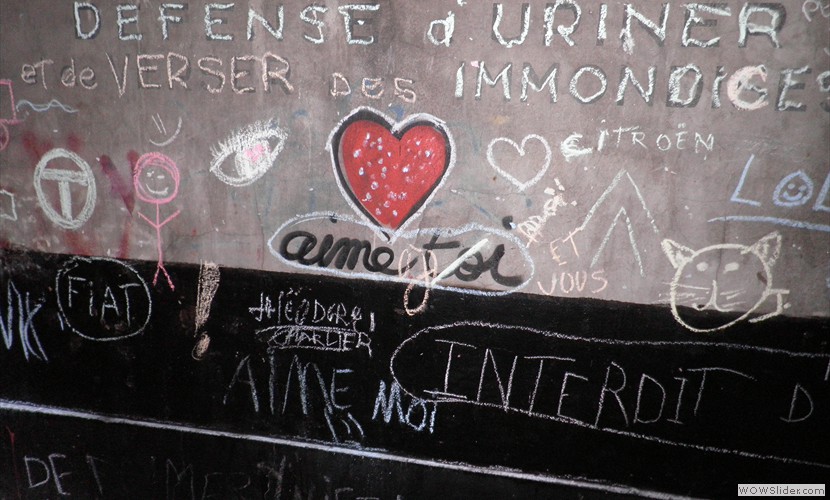 DEFENSE d'URINER
WOW
et de VERSER DES IMMONDICES
CITROËN
LOL
T
aime toi
ET
VOUS
FIAT
!
CHARLIER
AIME
MOI
INTERDIT D
DE
WOWSlider.com